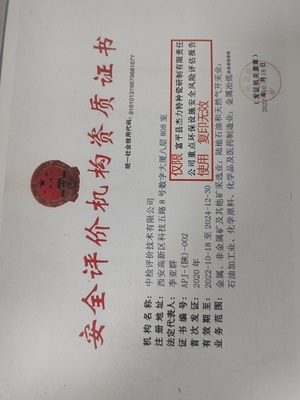 安全评价机构资质证书
统一社会信用代码：
机构名称：中检评价技术有限公司
注册地址：西安高新区科技五路8号数字大厦八层808室
法定代表人：李亚群
证书编号：APJ-(陕)-002
首次发证：2020年
有效期至：2022-10-18至2024-12-30
业务范围：金属、非金属矿及其他矿采选业；陆地石油和天然气开采业；
石油加工业，化学原料、化学品及医药制造业；金属冶炼
仅限 富平县杰力特种瓷研制有限责任
公司重点环保设施安全风险评估报告
使用 复印无效
（发证机关盖章）
2022年10月18日